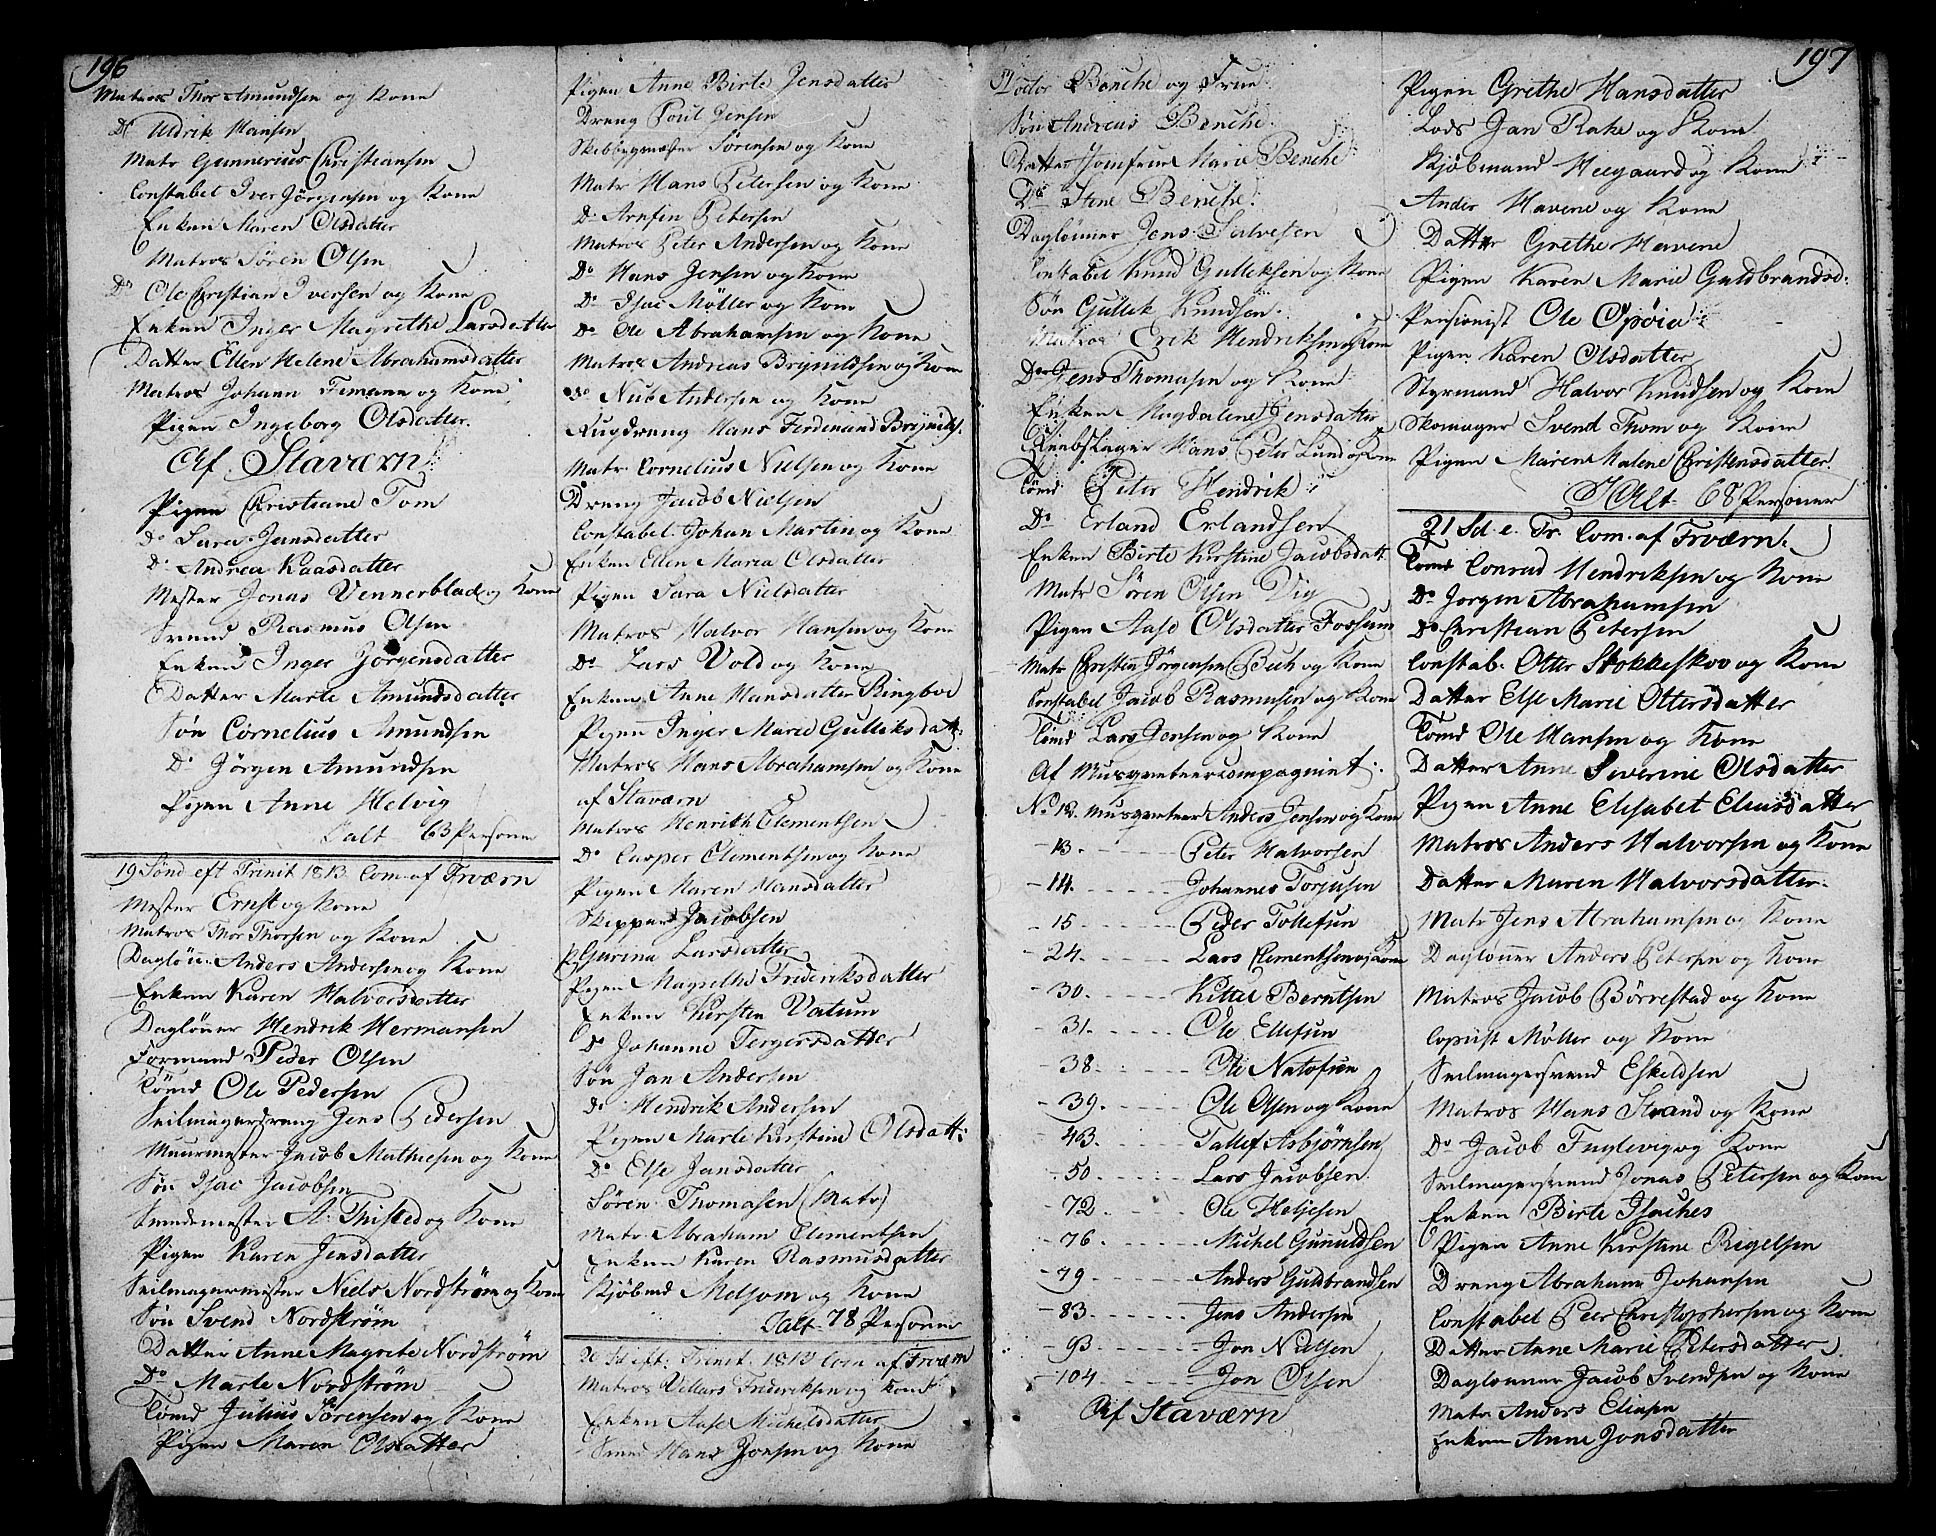 196
Matros Thor Amundsen og Kone
Do Uldrik Hansen
Matr Gunnerius Christiansen
Constabel Iver Jörgensen og Kone
Enken Maren Olsdatter
Matros Sören Olsen
Do Ole Christian Iversen og Kone
Enken Inger Magrethe Larsdatter
Datter Ellen Helene Abrahamsdatter
Matros Johann Timann og Kone
Pigen Ingeborg Olsdatter.
Af Staværn
Pigen Christiane Tom
do Lara Jansdatter
Do Andrea Kaasdatter
Mester Jonas Vennerblad og Kone
Svend Rasmus Olsen
Enken Inger Jörgensdatter
Datter Marte Amundsdatter
Sön Cornelius Amundsen
Do Jörgen Amundsen
Pigen Anne Helvig
Ialt 63 Personer
19 Sönd eft Trinit 1813. Com. af Frværn
Mester Ernst og Kone
Matros Thor Thorsen og Kone
Daglön: Anders Andersen og Kone
Enken Karen Halvorsdatter
Daglöner Hendrik Hermansen
Formand Peder Olsen
Tömd Ole Pedersen
Seilmagerdreng Jens Pedersen
Muurmester Jacob Mathiesen og Kone
Sön Isac Jacobsen
Smedemester A. Thisted og Kone
Pigen Karen Jensdatter
Seilmagermester Niels Nordström og Kone
Sön Svend Nordström
Datter Anne Magrete Nordström
Do Marte Nordström
Tömd Julius Sörensen og Kone
Pigen Maren Olsdatter
Pigen Anne Birte Jensdatter
Dreng Poul Jensen
Skibbygmester Sörensen og Kone
Matr Hans Petersen og Kone
Do Arnfin Petersen
Matros Peter Andersen og Kone
Do Hans Jensen og Kone
Do Isac Möller og Kone
Do Ole Abrahamsen og Kone
Matros Andreas Brynildsen og Kone
do Nub Andersen og Kone
Rugdreng Hans Ferdinand Brynilds.
Matr Cornelius Nielsen og Kone
Dreng Jacob Nielsen
Constabel Johan Martin og Kone
Enken Ellen Maria Olsdatter
Pigen Sara Nielsdatter
Matros Halvor Hansen og Kone
Do Lars Vold og Kone
Enken Anne Hansdatter Ringboe
Pigen Inger Marie Gulliksdatt:
Matros Hans Abrahamsen og Kone
af Staværn
Matros Henrich Clementsen
Do Casper Clementsen og Kone
Pigen Maren Hansdatter
Skipper Jacobsen
Gurina Larsdatter
Pigen Magrethe Frideriksdatter
Enken Kirsten Vatum
Do Johanne Tergersdatter
Sön Jan Andersen
do Hendrik Andersen
Pigen Marte Kirstine Olsdatt:
Do Else Jansdatter
Sören Thomasen (Matr)
Matr Abraham Clementsen
Enken Karen Rasmusdatter
Kjöbmd Melsom og Kone
Ialt 78 Personer
20 Sd eft: Trinit. 1813 Com af Frværn
Matros Villars Frideriksen og Kone
Enken Aase Michelsdatter
Svend Hans Jonsen og Kone
Doctor Benche og Frue
Sön Andreas Benche.
Datter Jomfrue Marie Benche
Do Stine Benche.
Daglönner Jens Salvesen
Constabel Knud Gulliksen og Kone
Sön Gullik Knudsen.
Matros Erik Hendriksen og Kone
Do Jens Thomasen og Kone
Enken Magdalene Jensdatter
Reebslager Hans Peter Lund og Kone
Tömd: Peter Hendrik:
Do Erland Erlandsen
Enken Birte Kirstine Jacobsdatt.
Matr Sören Olsen Vig
Pigen Aase Olsdatter Fossum
Matr Christen Jörgensen Buh og Kone
Constabel Jacob Rasmusen og Kone
Tömd Lars Jensen og Kone
Af Musqveteercompagniet.
No 12. Musqveteer Anders Jensen og Kone
13. Peter Halvorsen
14. Johannes Torjusen
15 Peder Tollefsen
24. Lars Clementsen og Kone
30. Kittel Berntsen
31. Ole Ellefsen
38. Ole Natofsen
39. Ole Olsen og Kone
43. Tallef Asbjörnsen
50. Lars Jacobsen
72. Ole Heljesen
76. Michel Gunuldsen
79. Anders Guldbrandsen
83. Jens Andersen
93. Jon Nielsen
104. Jon Olsen
Af Staværn
197
Pigen Grethe Hansdatter
Lods Jan Rake og Kone
Kjöbmand Heegaard og Kone
Ander Havene og Kone
Datter Grethe Havene
Pigen Karen Marie Guldbrandsd:
Pensionist Ole Opöie
Pigen Karen Olsdatter
Styrmand Halvor Knudsen og Kone
Skomager Svend Thom og Kone
Pigen Maren Malene Christensdatter.
I Alt 68 Personer
21 Sd. e. Tr. Com. af Frværn.
Tömd Conrad Hendriksen og Kone
Do Jorgen Abrahamsen
Do Christian Petersen
Constab. Otter Stokkeskov og Kone
Datter Else Marie Ottersdatter
Tömd Ole Hansen og Kone
Datter Anne Severine Olsdatter
Pigen Anne Elisabet Eliasdatter
Matros Anders Halvorsen og Kone
Datter Maren Halvorsdatter.
Matr Jens Abrahamsen og Kone
Daglönner Anders Petersen og Kone
Matros Jacob Börrestad og Kone
Copiist Möller og Kone
Seilmagersvend Eskildsen
Matros Hans Strand og Kone
Do Jacob Fuglevig og Kone
Seilmagersvend Jonas Petersen og Kone
Enken Birte Isaches
Pigen Anne Kirstine Rigelsen
Dreng Abraham Johansen
Constabel Peer Christophersen og Kone
Datter Anne Marie Petersdatter
Daglönner Jacob Svendsen og Kone
Matr. Anders Eliasen
Enken Anne Jonsdatter